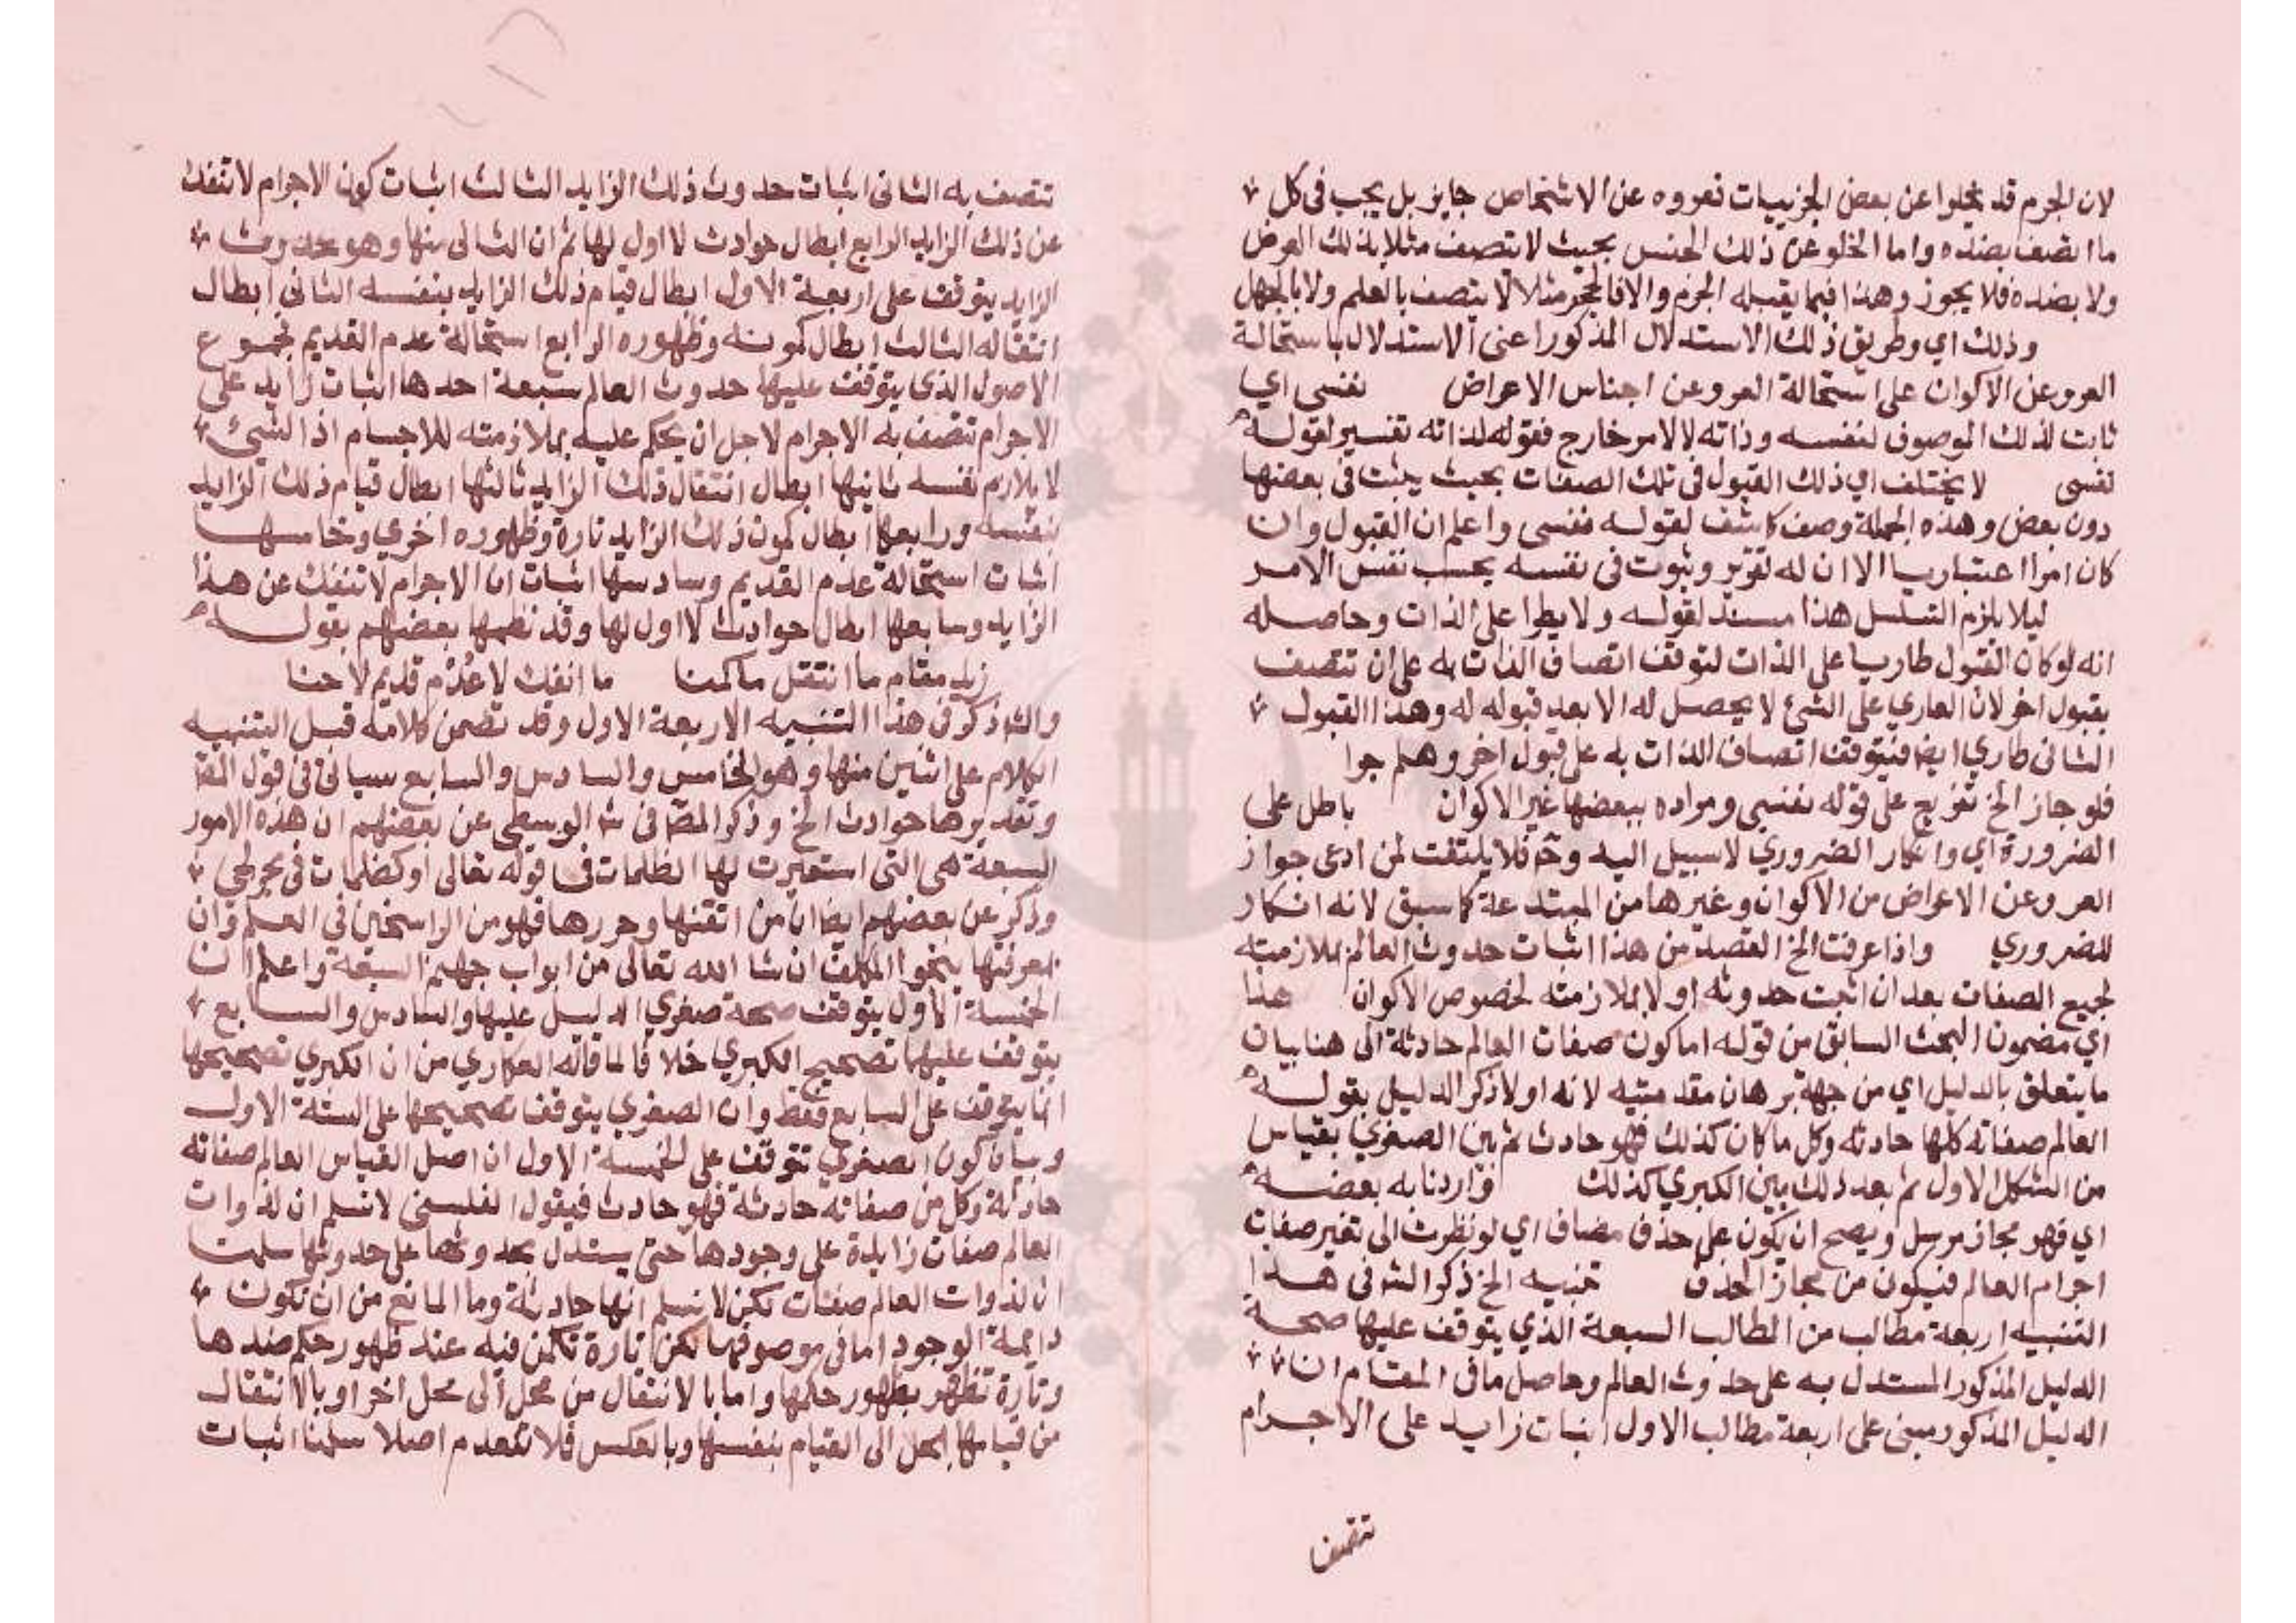 لان الجرم قد يخلوا عن بعض الجزييات نعروه عن الاشخاص جايز بل يجب في كل
ما اتصف بضده واما الخلو عن ذلك الجنس بحيث لا تتصف مثلا بذلك العرض
ولا بضده فلا يجوز وهذا فيما يقبله الجرم والا فالحجر مثلا لا يتصف بالعلم ولا بالجهل
وذلك اي وطريق ذلك الاستدلال المذكور اعني الاستدلال باستحالة
العرو عن الاكوان على استحالة العرو عن اجناس الاعراض نفسي اي
ثابت لذلك الموصوف لنفسه وذاته لا لامر خارج فقوله لذاته تفسير لقوله
نفسي لا يختلف اي ذلك القبول في تلك الصفات بحيث يثبت في بعضها
دون بعض وهذه الجملة وصف كاشف لقوله نفسي واعلم ان القبول وان
كان امرا اعتباريا الا ان له تقرر وثبوت في نفسه بحسب نفس الامر
ليلا يلزم التسلسل هذا مسند لقوله ولا يطرا على الذات وحاصله
انه لو كان القبول طاريا على الذات لتوقف اتصاف الذات به على ان تتصف
بقبول اخر لان الطاري على الشئ لا يحصل له الا بعد قبوله له وهذا القبول
الثاني طاري ايضا فيتوقف اتصاف الذات به على قبول اخر وهلم جرا
فلو جاز الخ تفريع على قوله نفسي ومراده ببعضها غير الاكوان باطل على
الضرورة اي وانكار الضروري لا سبيل اليه وح فلا يلتفت لمن ادعى جواز
العرو عن الاعراض من الاكوان وغيرها من المبتدعة كما سبق لانه انكار
للضروري واذا عرفت الخ القصد من هذا اثبات حدوث العالم بملازمته
لجميع الصفات بعد ان اثبت حدوثه اولا بملازمته لخصوص الاكوان هذا
اي مضمون البحث السابق من قوله اما كون صفات العالم حادثة الى هنا بيان
ما يتعلق بالدليل اي من جهة برهان مقدمتيه لانه اولا ذكر الدليل بقوله
العالم صفاته كلها حادثه وكل ما كان كذلك فهو حادث ثم بين الصغري بقياس
من الشكل الاول ثم بعد ذلك بين الكبري كذلك واردنا به بعضه
اي فهو مجاز مرسل ويصح ان يكون على حذف مضاف اي لو نظرت الى تغير صفات
اجرام العالم فيكون من مجاز الحذف تنبيه الخ ذكر الش في هذا
التنبيه اربعة مطالب من المطالب السبعة الذي يتوقف عليها صحة
الدليل المذكور المستدل به على حدوث العالم وحاصل ما في المقام ان
الدليل المذكور مبني على اربعة مطالب الاول اثبات زايد على الاجرام
تتصف
تتصف به الثاني اثبات حدوث ذلك الزايد الثالث اثبات كون الاجرام لا تنفك
عن ذلك الزايد الرابع ابطال حوادث لا اول لها ثم ان الثاني منها وهو حدوث
الزايد يتوقف على اربعة الاول ابطال قيام ذلك الزايد بنفسه الثاني ابطال
انتقاله الثالث ابطال كمونه وظهوره الرابع استحالة عدم القديم فجموع
الاصول الذي يتوقف عليها حدوث العالم سبعة احدها اثبات زايد على
الاجرام تتصف به الاجرام لاجل ان يحكم عليه بملازمته للاجسام اذ الشئ
لا يلازم نفسه ثانيها ابطال انتقال ذلك الزايد ثالثها ابطال قيام ذلك الزايد
بنفسه ورابعها ابطال كمون ذلك الزايد تارة وظهوره اخري وخامسها
اثبات استحالة عدم القديم وسادسها اثبات ان الاجرام لا تنفك عن هذا
الزايد وسابعها ابطال حوادث لا اول لها وقد نظمها بعضهم بقوله
زيد مقام ما انتقل ما كمنا ما انفك لا عُدْم قديم لا حنا
والش ذكر في هذا التنبيه الاربعة الاول وقد تضمن كلامه قبل التنبيه
الكلام على اثنين منها وهو الخامس والسادس والسابع سياتي في قول المص
وتقدير ها حوادث الخ وذكر المص في ش الوسطى عن بعضهم ان هذه الامور
السبعة هي التي استعيرت لها الظلمات في قوله تعالى او كظلمات في بحر لجي
وذكر عن بعضهم ايضا ان من اتقنها وحررها فهو من الراسخين في العلم وان
بمعرفتها ينجوا المكلف ان شا الله تعالى من ابواب جهنم السبعة واعلم ان
الخمسة الاول يتوقف صحة صغري الدليل عليها والسادس والسابع
يتوقف عليهما تصحيح الكبري خلافا لما قاله العكاري من ان الكبري تصحيحها
انما يتوقف على السابع فقط وان الصغري يتوقف تصحيحها على الستة الاول
وبيان كون الصغري تتوقف على الخمسة الاول ان اصل القياس العالم صفاته
حادثة وكل من صفاته حادثة فهو حادث فيقول الفلسفي لا نسلم ان لذوات
العالم صفات زايدة على وجودها حتى يستدل بحدوثها على حدوثها سلمت
ان لذوات العالم صفات لكن لا نسلم انها حادثة وما المانع من ان تكون
دايمة الوجود اما في موصوفها لكن تارة تكمن فيه عند ظهور حكم ضدها
وتارة تظهر بظهور حكمها واما بالانتقال من محل الى محل اخر او بالانتقال
من قيامها بمحل الى القيام بنفسها وبالعكس فلا تنعدم اصلا سلمنا اثبات